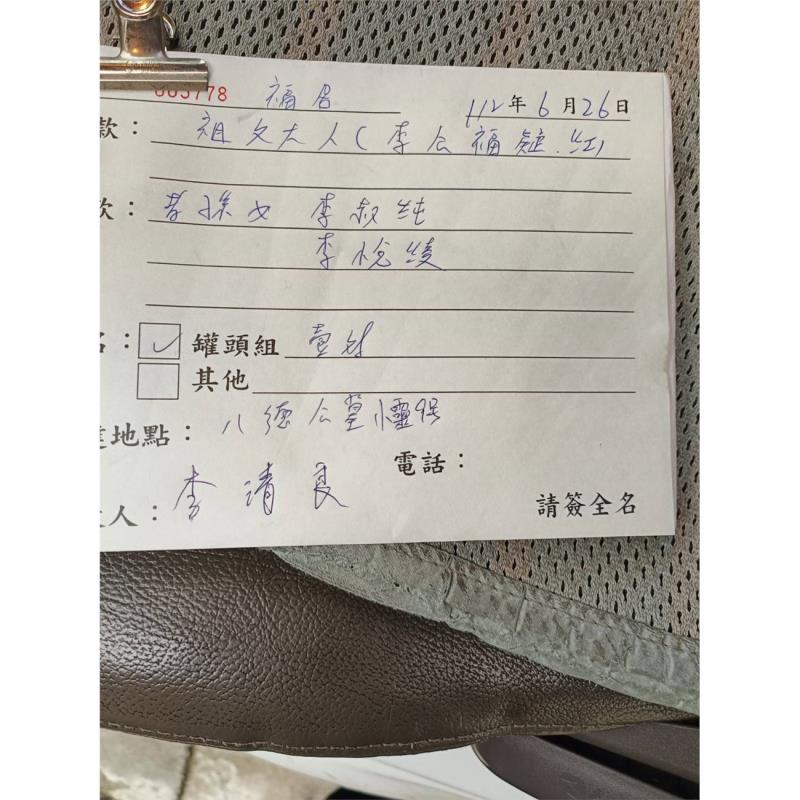 003778 福居 112年6月26日
款：祖父大人(李公福 紅)
款：孝孫女 李叔純
李悅綾
名：✓ 罐頭組 壹对
其他
達地點：八德公墓
電話：
人：李靖良
請簽全名